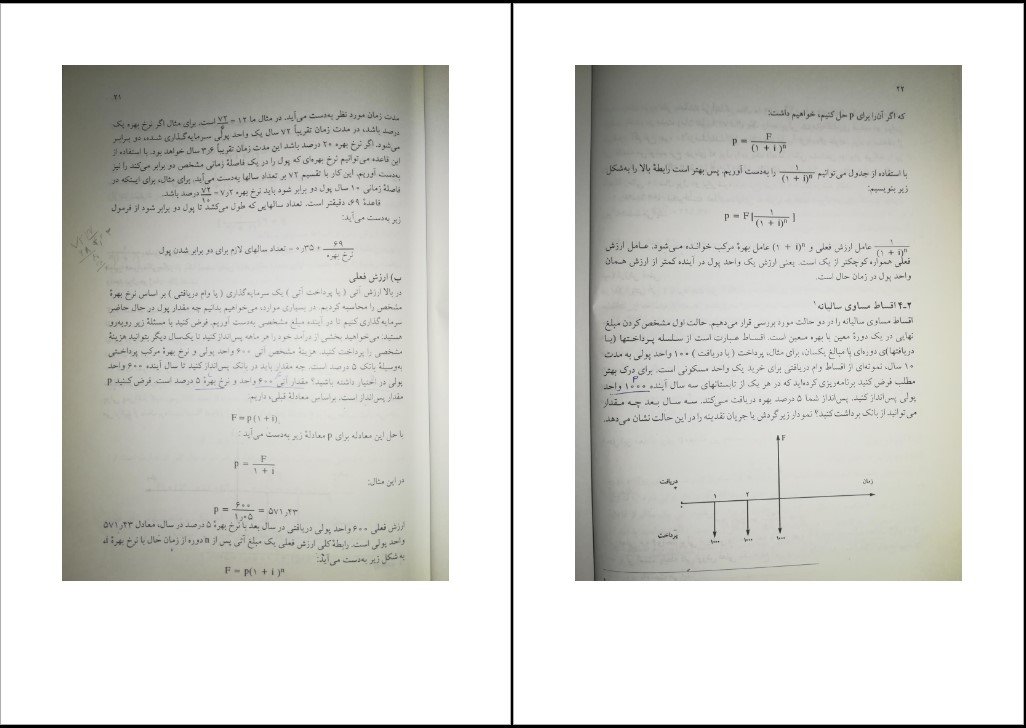 ۲۱
مدت زمان مورد نظر به‌دست می‌آید. در مثال ما ۱۲ = ۷۲/۶ است. برای مثال اگر نرخ بهره یک
درصد باشد، در مدت زمان تقریباً ۷۲ سال یک واحد پولی سرمایه‌گذاری شده، دو برابر
می‌شود. اگر نرخ بهره ۲۰ درصد باشد این مدت زمان تقریباً ۳٫۶ سال خواهد بود. با استفاده از
این قاعده می‌توانیم نرخ بهره‌ای که پول را در یک فاصلهٔ زمانی مشخص دو برابر می‌کند را نیز
به‌دست آوریم. این کار با تقسیم ۷۲ بر تعداد سالها به‌دست می‌آید. برای مثال، برای اینکه در
فاصلهٔ زمانی ۱۰ سال پول دو برابر شود باید نرخ بهره ۷٫۲ = ۷۲/۱۰ درصد باشد.
قاعدهٔ ۶۹، دقیقتر است. تعداد سالهایی که طول می‌کشد تا پول دو برابر شود از فرمول
زیر به‌دست می‌آید:
۶۹/نرخ بهره + ۰٫۳۵ = تعداد سالهای لازم برای دو برابر شدن پول
ب) ارزش فعلی
در بالا ارزش آتی ( یا پرداخت آتی ) یک سرمایه‌گذاری ( یا وام دریافتی ) بر اساس نرخ بهرهٔ
مشخص را محاسبه کردیم. در بسیاری موارد، می‌خواهیم بدانیم چه مقدار پول در حال حاضر
سرمایه‌گذاری کنیم تا در آینده مبلغ مشخصی به‌دست آوریم. فرض کنید با مسئلهٔ زیر روبه‌رو
هستید: می‌خواهید بخشی از درآمد خود را هر ماهه پس‌انداز کنید تا یک‌سال دیگر بتوانید هزینهٔ
مشخصی را پرداخت کنید. هزینهٔ مشخص آتی ۶۰۰ واحد پولی و نرخ بهرهٔ مرکب پرداختی
به‌وسیلهٔ بانک ۵ درصد است. چه مقدار باید در بانک پس‌انداز کنید تا سال آینده ۶۰۰ واحد
پولی در اختیار داشته باشید؟ مقدار آتی ۶۰۰ واحد و نرخ بهرهٔ ۵ درصد است. فرض کنید p
مقدار پس‌انداز است. براساس معادلهٔ قبلی، داریم:
F = p (۱ + i)
با حل این معادله برای p معادلهٔ زیر به‌دست می‌آید :
p = F/(۱ + i)
در این مثال:
p = ۶۰۰/۱٫۰۵ = ۵۷۱٫۴۳
ارزش فعلی ۶۰۰ واحد پولی دریافتی در سال بعد با نرخ بهرهٔ ۵ درصد در سال، معادل ۵۷۱٫۴۳
واحد پولی است. رابطهٔ کلی ارزش فعلی یک مبلغ آتی پس از n دوره از زمان حال با نرخ بهرهٔ i،
به شکل زیر به‌دست می‌آید:
F = p(۱ + i )ⁿ
۲۲
که اگر آن را برای p حل کنیم، خواهیم داشت:
p = F/(۱ + i )ⁿ
با استفاده از جدول می‌توانیم ۱/(۱ + i)ⁿ را به‌دست آوریم. پس بهتر است رابطهٔ بالا را به‌شکل
زیر بنویسیم:
p = F [۱/(۱ + i)ⁿ]
۱/(۱ + i)ⁿ عامل ارزش فعلی و (۱ + i)ⁿ عامل بهرهٔ مرکب خوانده می‌شود. عامل ارزش
فعلی همواره کوچکتر از یک است. یعنی ارزش یک واحد پول در آینده کمتر از ارزش همان
واحد پول در زمان حال است.
۲ـ۴ اقساط مساوی سالیانه۱
اقساط مساوی سالیانه را در دو حالت مورد بررسی قرار می‌دهیم. حالت اول مشخص کردن مبلغ
نهایی در یک دورهٔ معین با بهره معین است. اقساط عبارت است از سلسله پرداختها (یا
دریافتها)ی دوره‌ای با مبالغ یکسان، برای مثال، پرداخت ( یا دریافت ) ۱۰۰ واحد پولی به مدت
۱۰ سال، نمونه‌ای از اقساط وام دریافتی برای خرید یک واحد مسکونی است. برای درک بهتر
مطلب فرض کنید برنامه‌ریزی کرده‌اید که در هر یک از تابستانهای سه سال آینده ۱۰۰۰ واحد
پولی پس‌انداز کنید. پس‌انداز شما ۵ درصد بهره دریافت می‌کند. سه سال بعد چه مقدار
می‌توانید از بانک برداشت کنید؟ نمودار زیر گردش یا جریان نقدینه را در این حالت نشان می‌دهد.
F
دریافت
زمان
۱ ۲
پرداخت
۱۰۰۰ ۱۰۰۰ ۱۰۰۰